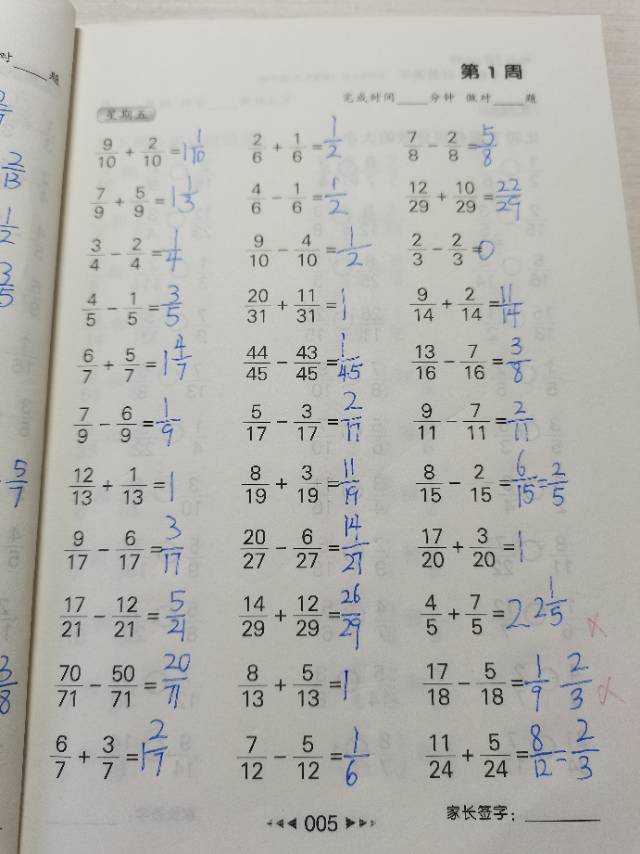 对____题
第1周
完成时间____分钟 做对____题
星期五
9/10 + 2/10 = 1 1/10 2/6 + 1/6 = 1/2 7/8 - 2/8 = 5/8
7/9 + 5/9 = 1 1/3 4/6 - 1/6 = 1/2 12/29 + 10/29 = 22/29
3/4 - 2/4 = 1/4 9/10 - 4/10 = 1/2 2/3 - 2/3 = 0
4/5 - 1/5 = 3/5 20/31 + 11/31 = 1 9/14 + 2/14 = 11/14
6/7 + 5/7 = 1 4/7 44/45 - 43/45 = 1/45 13/16 - 7/16 = 3/8
7/9 - 6/9 = 1/9 5/17 - 3/17 = 2/17 9/11 - 7/11 = 2/11
12/13 + 1/13 = 1 8/19 + 3/19 = 11/19 8/15 - 2/15 = 6/15 = 2/5
9/17 - 6/17 = 3/17 20/27 - 6/27 = 14/27 17/20 + 3/20 = 1
17/21 - 12/21 = 5/21 14/29 + 12/29 = 26/29 4/5 + 7/5 = 2 2 1/5 ×
70/71 - 50/71 = 20/71 8/13 + 5/13 = 1 17/18 - 5/18 = 1/9 2/3 ×
6/7 + 3/7 = 1 2/7 7/12 - 5/12 = 1/6 11/24 + 5/24 = 8/12 = 2/3
005
家长签字：____